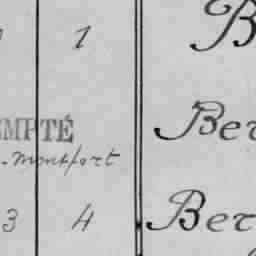 1 B
MPTÉ Ber
-montfort
3 4 Ber